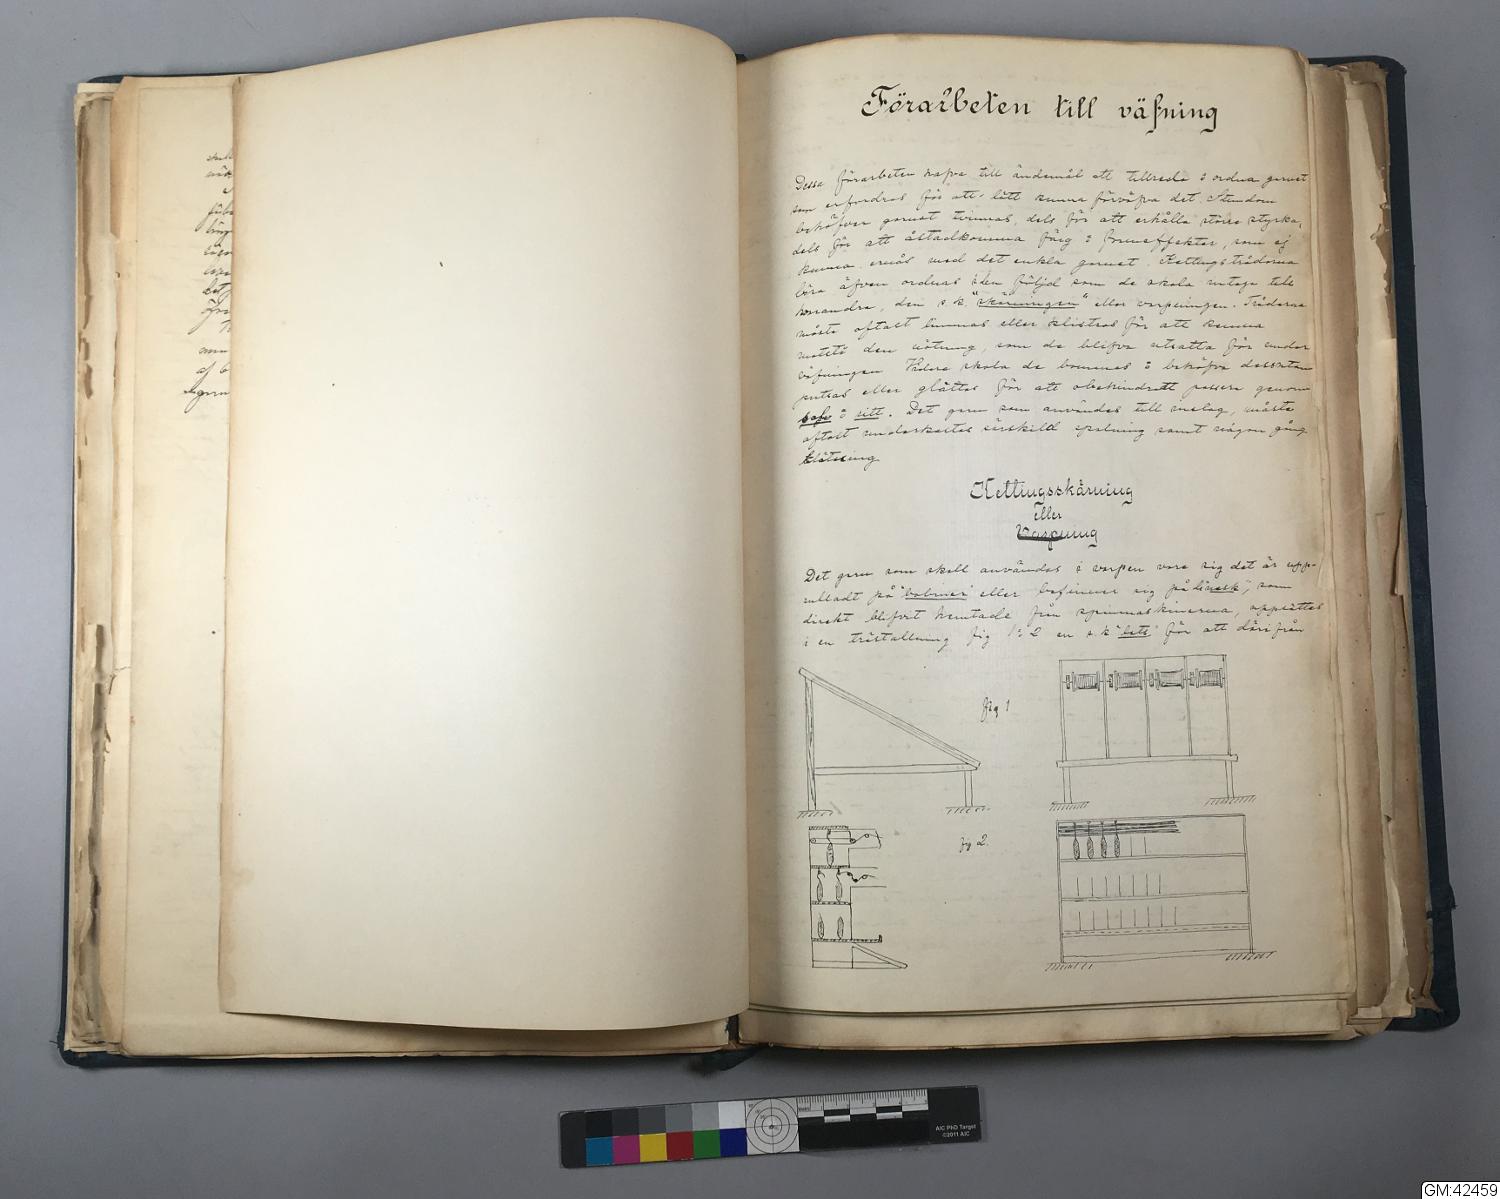 Förarbeten till väfning
Dessa förarbeten hafva till ändamål att tillreda & ordna garnet
som erfordras för att lätt kunna förväfva det. Stundom
behöfver garnet tvinnas, dels för att erhålla större styrka,
dels för att åstadkomma färg & formeffekter, som ej
kunna ernås med det enkla garnet. Kettingstrådarna
böra äfven ordnas i den följd som de skola intaga till
hvarandra, den s.k. "skärningen" eller varpningen. Trådarna
måste oftast limmas eller klistras för att kunna
motstå den nötning, som de blifva utsatta för under
väfningen. Vidare skola de bommas & behöfva dessutom
putsas eller glättas för att obehindradt passera genom
solv & sitt. Det garn som användes till inslag, måste
oftast underkastas särskild spolning samt någon gång
Kettingsskärning
eller
Varpning
Det garn som skall användas i varpen vare sig det är upp-
rulladt på "bobiner" eller befinner sig på som
direkt blifvit hemtade från spinnmaskinerna, uppsättes
i en träställning fig 1 & 2 en s.k för att därifrån
fig 1
fig 2.
AIC PhD Target
©2011 AIC
GM:42459